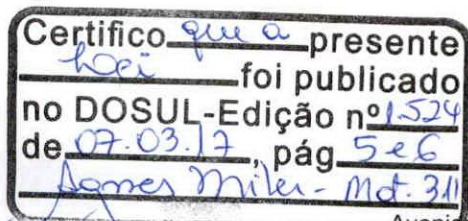 Certifico que a presente
Lei foi publicado
no DOSUL-Edição nº 1.524
de 07.03.17, pág 5 e 6
Agnes Miler - Mat. 311
Avenia